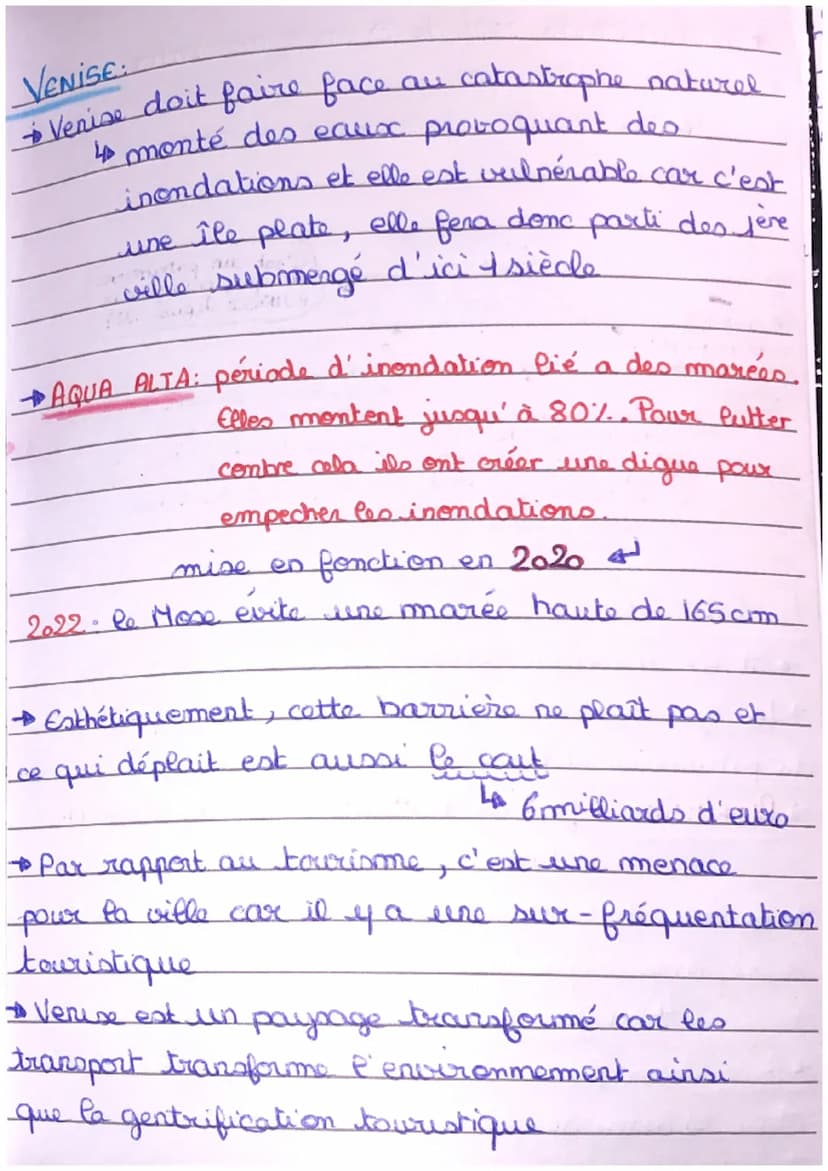 VENISE:
→ Venise doit faire face au catastrophe naturel
↳ monté des eaux provoquant des
inondations et elle est vulnérable car c'est
une île plate, elle fera donc parti des 1ère
ville submergé d'ici 1 siècle
→ AQUA ALTA: période d'inondation lié a des marées.
Elles montent jusqu'à 80%. Pour lutter
contre cela ils ont créer une digue pour
empecher les inondations.
mise en fonction en 2020 ↲
2022: le Mose évite une marée haute de 165cm
→ Esthétiquement, cette barrière ne plaît pas et
ce qui déplait est aussi le cout
↳ 6 milliards d'euro
→ Par rapport au tourisme, c'est une menace
pour la ville car il y a une sur-fréquentation
touristique
→ Venise est un paysage transformé car les
transport transforme l'environnement ainsi
que la gentrification touristique